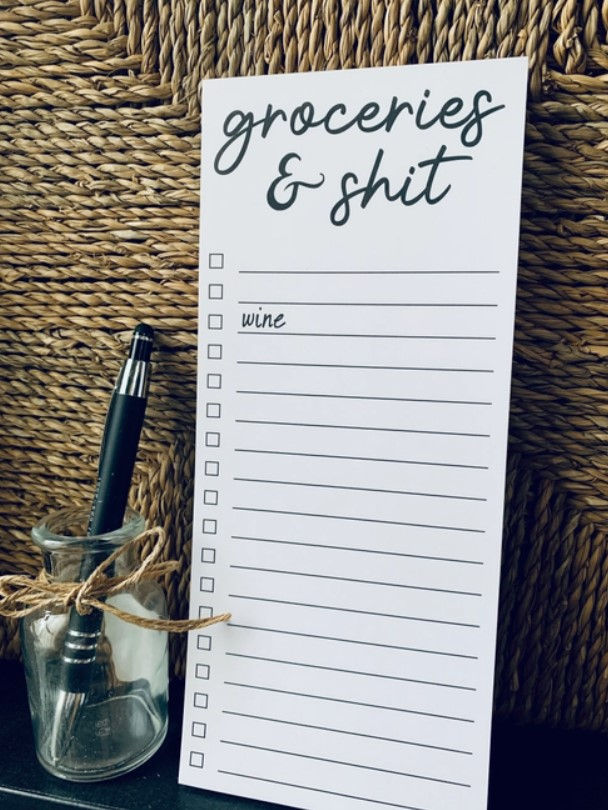 groceries
& shit
wine